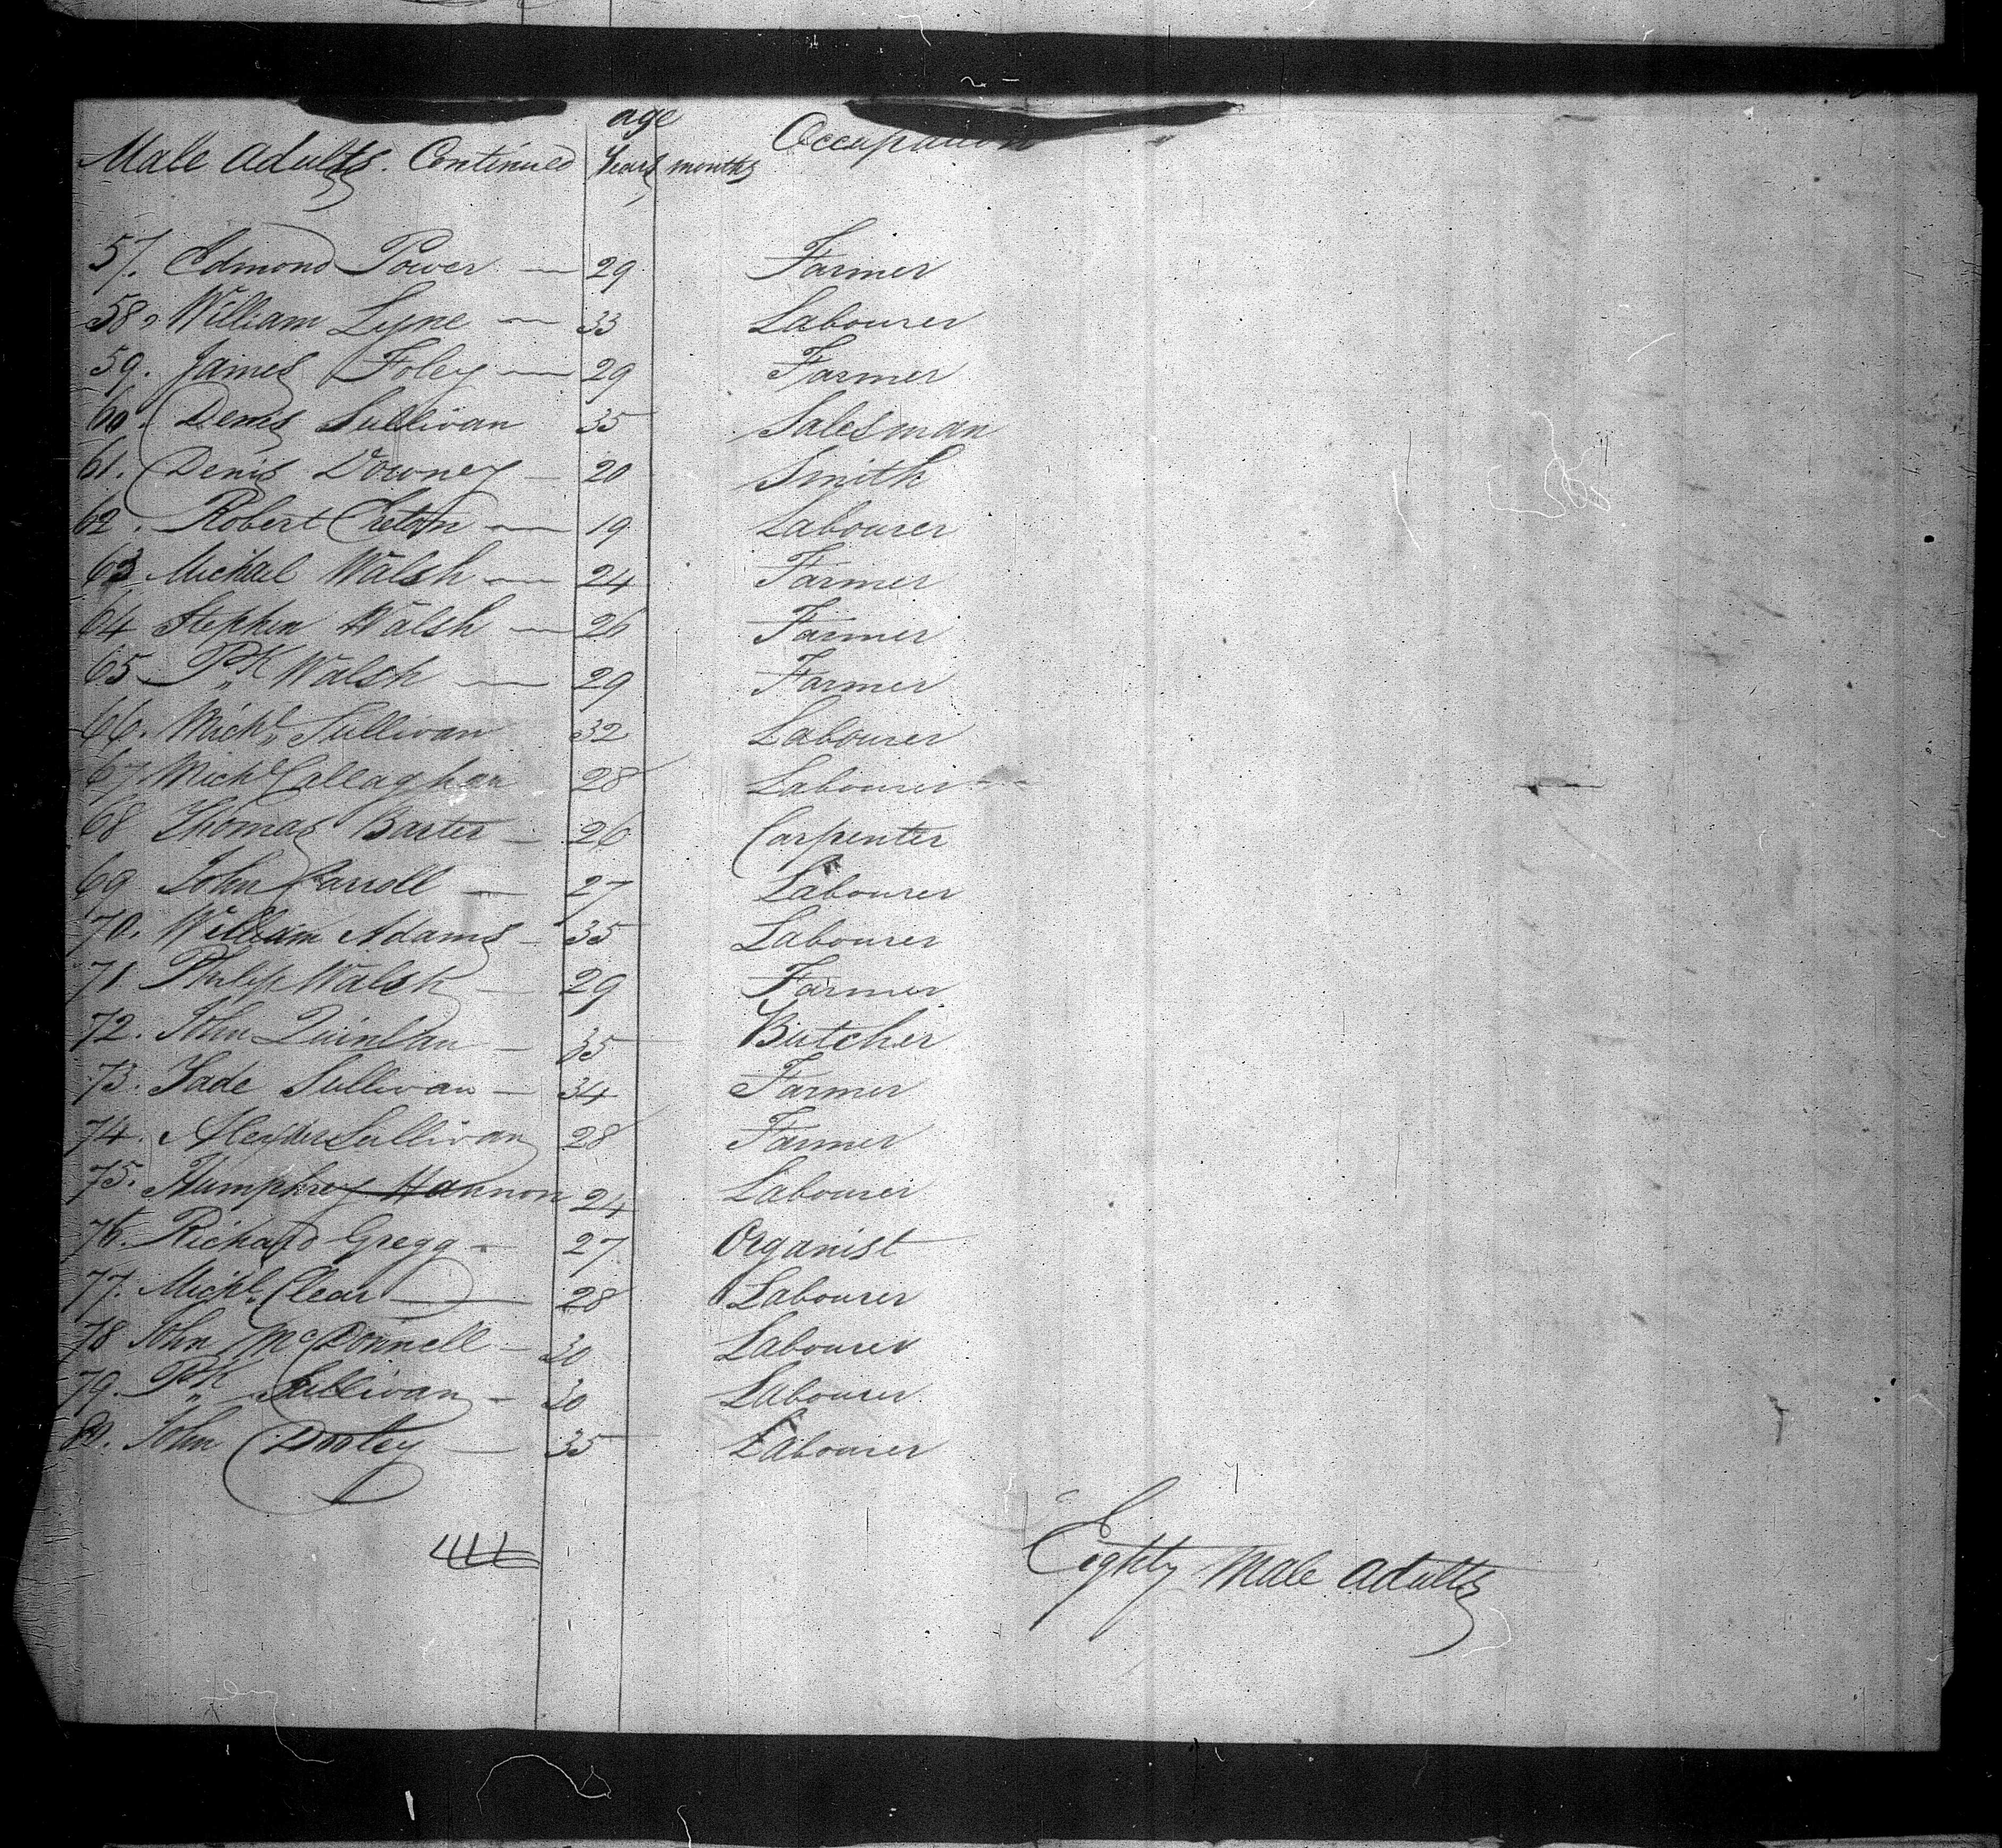 age
Male Adults. Continued Years months Occupation
57. Edmond Power — 29 Farmer
58. William Lyne — 33 Labourer
59. James Foley — 29 Farmer
60. Denis Sullivan 35 Salesman
61. Denis Downey — 20 Smith
62. Robert — 19 Labourer
63 Michael Walsh — 24 Farmer
64 Stephen Walsh — 26 Farmer
65 Pk Walsh — 29 Farmer
66. Michl Sullivan 32 Labourer
67 Michl Callaghan 28 Labourer
68 Thomas Barter — 26 Carpenter
69 John Carroll — 27 Labourer
70. William Adams — 35 Labourer
71 Philip Walsh — 29 Farmer
72. John Quinlan — 35 Butcher
73. Tade Sullivan — 34 Farmer
74. Sullivan 28 Farmer
75. Humphrey Hannon 24 Labourer
76. Richard Gregg — 27 Organist
77. Michl Clear — 28 Labourer
78 John McDonnell — 30 Labourer
79. Pk Sullivan — 30 Labourer
80. John Dooley — 35 Labourer
Eighty Male Adults